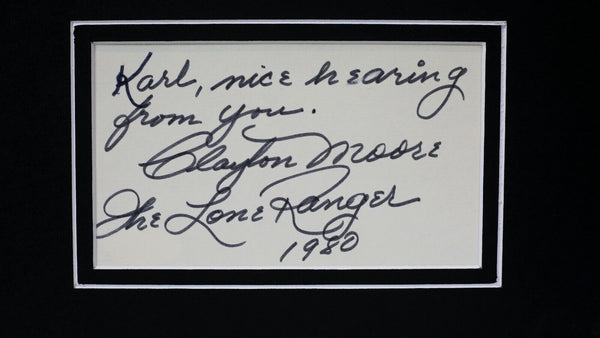 Karl, nice hearing
from you.
Clayton Moore
The Lone Ranger
1980